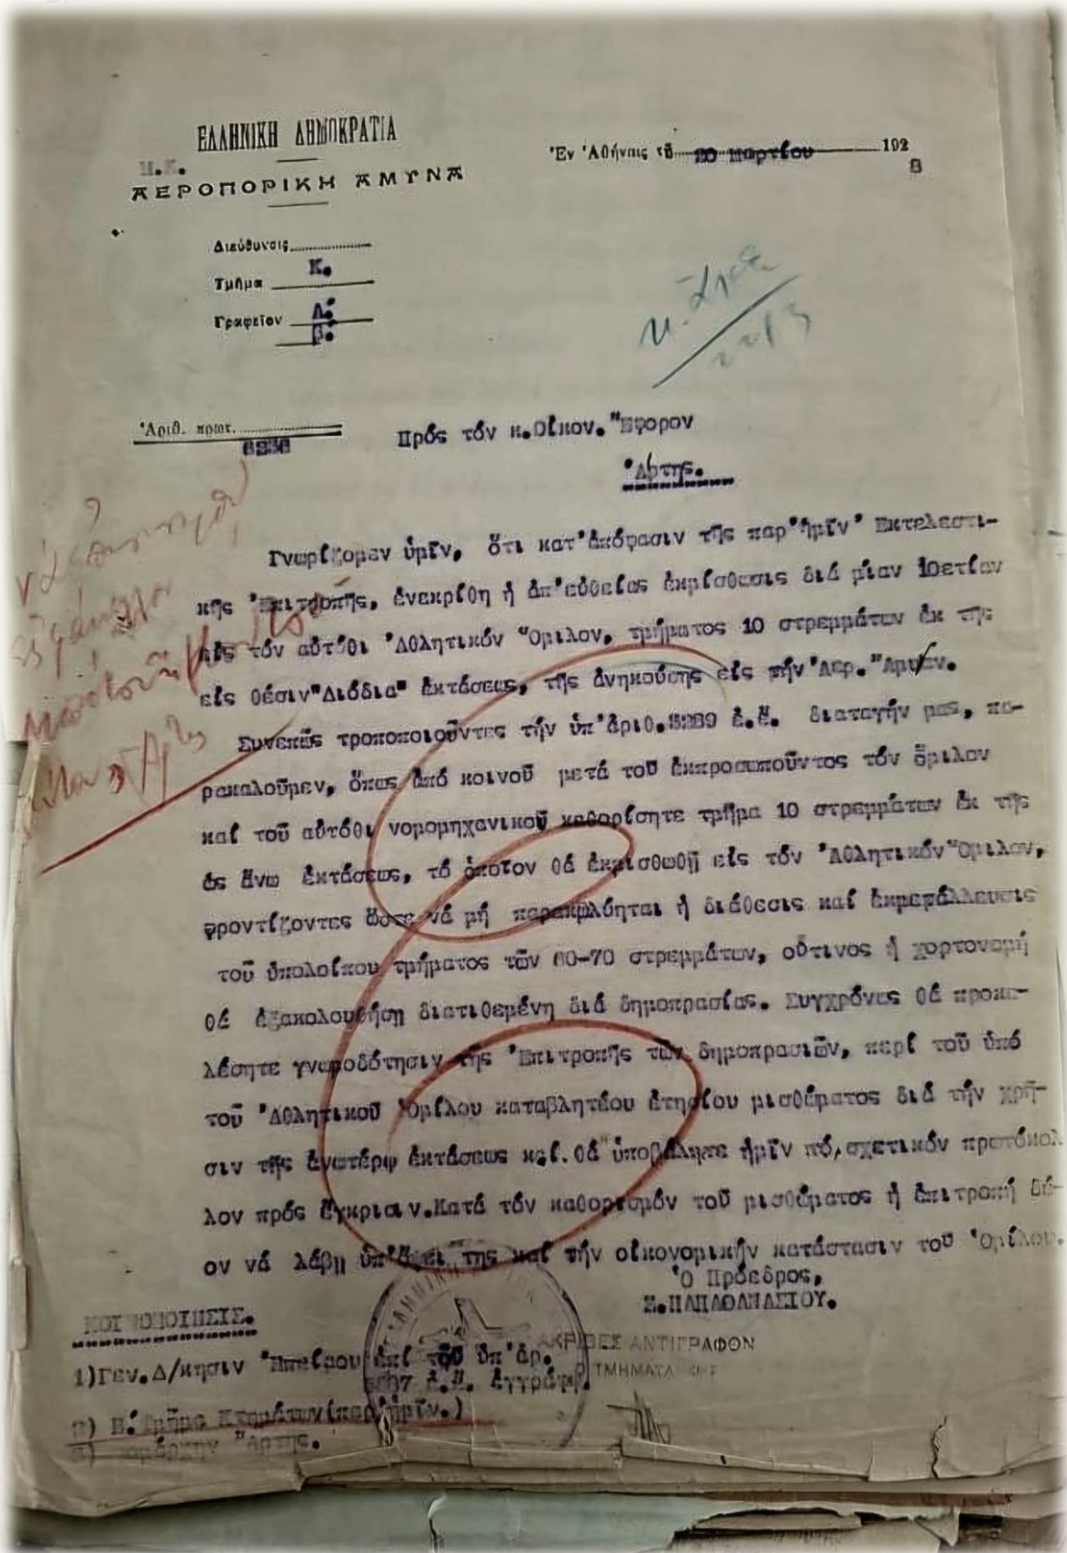 ΕΛΛΗΝΙΚΗ ΔΗΜΟΚΡΑΤΙΑ
Η.Κ.
ΑΕΡΟΠΟΡΙΚΗ ΑΜΥΝΑ
Ἐν Ἀθήναις τῇ 20 Μαρτίου 192
8
Διεύθυνσις
Τμῆμα Κ.
Γραφεῖον Δ.
Β.
22/3
Ἀριθ. πρωτ.
Πρός τόν κ.Οἰκον. Ἔφορον
Ἄρτης.
Γνωρίζομεν ὑμῖν, ὅτι κατ'ἀπόφασιν τῆς παρ'ἡμῖν Ἐκτελεστι-
κῆς Ἐπιτροπῆς, ἐνεκρίθη ἡ ἀπ'εὐθείας ἐκμίσθωσις διά μίαν 10ετίαν
εἰς τόν αὐτόθι Ἀθλητικόν Ὅμιλον, τμήματος 10 στρεμμάτων ἐκ τῆς
εἰς θέσιν"Διόδια" ἐκτάσεως, τῆς ἀνηκούσης εἰς τήν Ἀερ. Ἄμυναν.
Συνεπῶς τροποποιοῦντες τήν ὑπ'ἀριθ. ἐ.ἔ. διαταγήν μας, πα-
ρακαλοῦμεν, ὅπως ἀπό κοινοῦ μετά τοῦ ἐκπροσωποῦντος τόν ὅμιλον
καί τοῦ αὐτόθι νομομηχανικοῦ καθορίσητε τμῆμα 10 στρεμμάτων ἐκ τῆς
ὡς ἄνω ἐκτάσεως, τό ὁποῖον θά ἐκμισθωθῇ εἰς τόν Ἀθλητικόν Ὅμιλον,
φροντίζοντες ὥστε νά μή παρακωλύηται ἡ διάθεσις καί ἐκμετάλλευσις
τοῦ ὑπολοίπου τμήματος τῶν 60-70 στρεμμάτων, οὗτινος ἡ χορτονομή
θά ἐξακολουθήσῃ διατιθεμένη διά δημοπρασίας. Συγχρόνως θά προκα-
λέσητε γνωμοδότησιν τῆς Ἐπιτροπῆς τῶν δημοπρασιῶν, περί τοῦ ὑπό
τοῦ Ἀθλητικοῦ Ὁμίλου καταβλητέου ἐτησίου μισθώματος διά τήν χρῆ-
σιν τῆς ἀνωτέρω ἐκτάσεως καί θά ὑποβάλητε ἡμῖν τό σχετικόν πρωτόκολ
λον πρός ἔγκρισιν.Κατά τόν καθορισμόν τοῦ μισθώματος ἡ ἐπιτροπή δέ-
ον νά λάβῃ ὑπ'ὄψει της καί τήν οἰκονομικήν κατάστασιν τοῦ Ὁμίλου.
Ὁ Πρόεδρος,
Ζ.ΠΑΠΑΘΑΝΑΣΙΟΥ.
ΚΟΙΝΟΠΟΙΗΣΙΣ.
ΑΚΡΙΒΕΣ ΑΝΤΙΓΡΑΦΟΝ
Ο ΤΜΗΜΑΤΑΡΧΗΣ
1)Γεν.Δ/κησιν Ἠπείρου ἐπί τοῦ ὑπ'ἀρ.
ἐ.ἔ. ἐγγράφ.
2) Β. Τμῆμα Κτημάτων(παρ'ἡμῖν.)
3) Νομάρχην Ἄρτης.